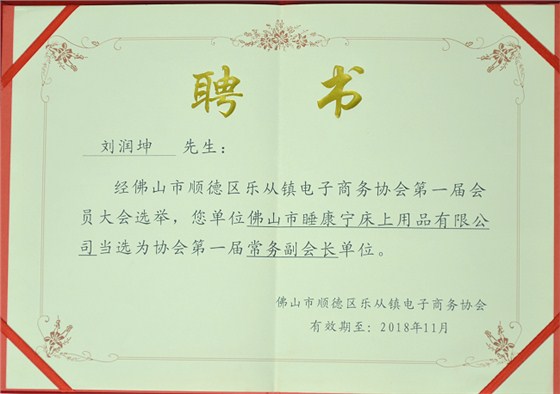 聘书
刘润坤 先生：
经佛山市顺德区乐从镇电子商务协会第一届会
员大会选举，您单位佛山市睡康宁床上用品有限公
司当选为协会第一届常务副会长单位。
佛山市顺德区乐从镇电子商务协会
有效期至：2018年11月